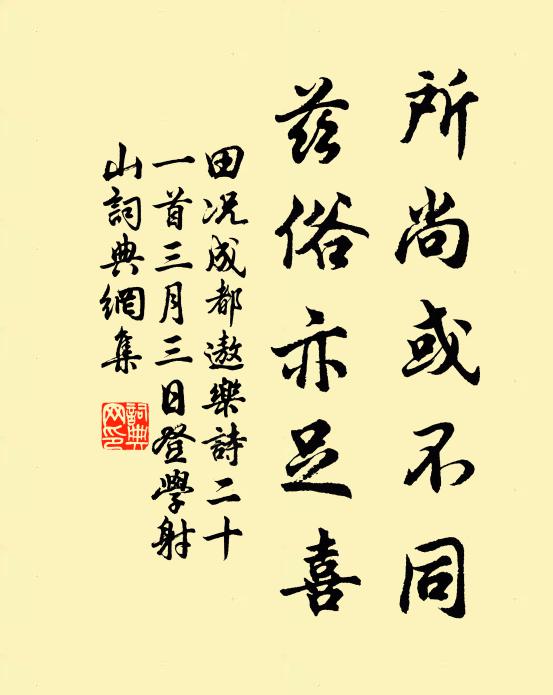 所尚或不同
茲俗亦足喜
田况成都遨樂詩二十
一首三月三日登學射
山詞典網集
詞典
网印